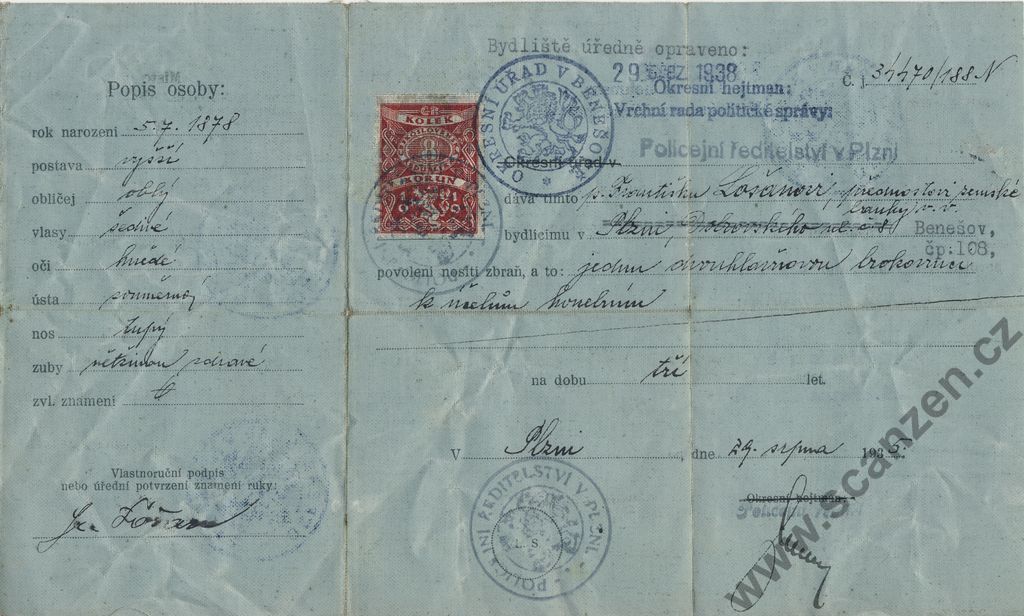 Popis osoby:
rok narození 5. 7. 1878
postava vyšší
obličej oblý
vlasy šedivé
oči hnědé
ústa souměrná
nos tupý
zuby většinou zdravé
zvl. znamení
Vlastnoruční podpis
nebo úřední potvrzení znamení ruky:
Bydliště úředně opraveno:
Okresní hejtman:
Vrchní rada politické správy:
Č. j. 34470/188 N
ČR
KOLEK
KORUN
OKRESNÍ ÚŘAD V BENEŠOVĚ
Okresní úřad v
Policejní ředitelství v Plzni
dává tímto p. Františku Lošanovi, přednostovi zemské
banky v. v.
bydlícímu v Plzni, Dobrovského ul. č 8 Benešov,
čp:108,
povolení nositi zbraň, a to: jednu dvouhlavňovou brokovnici
k účelům honebním
na dobu tři let.
V Plzni dne 29. srpna 193
POLICEJNÍ ŘEDITELSTVÍ V PLZNI
L. S.
Okresní hejtman:
www.scanzen.cz